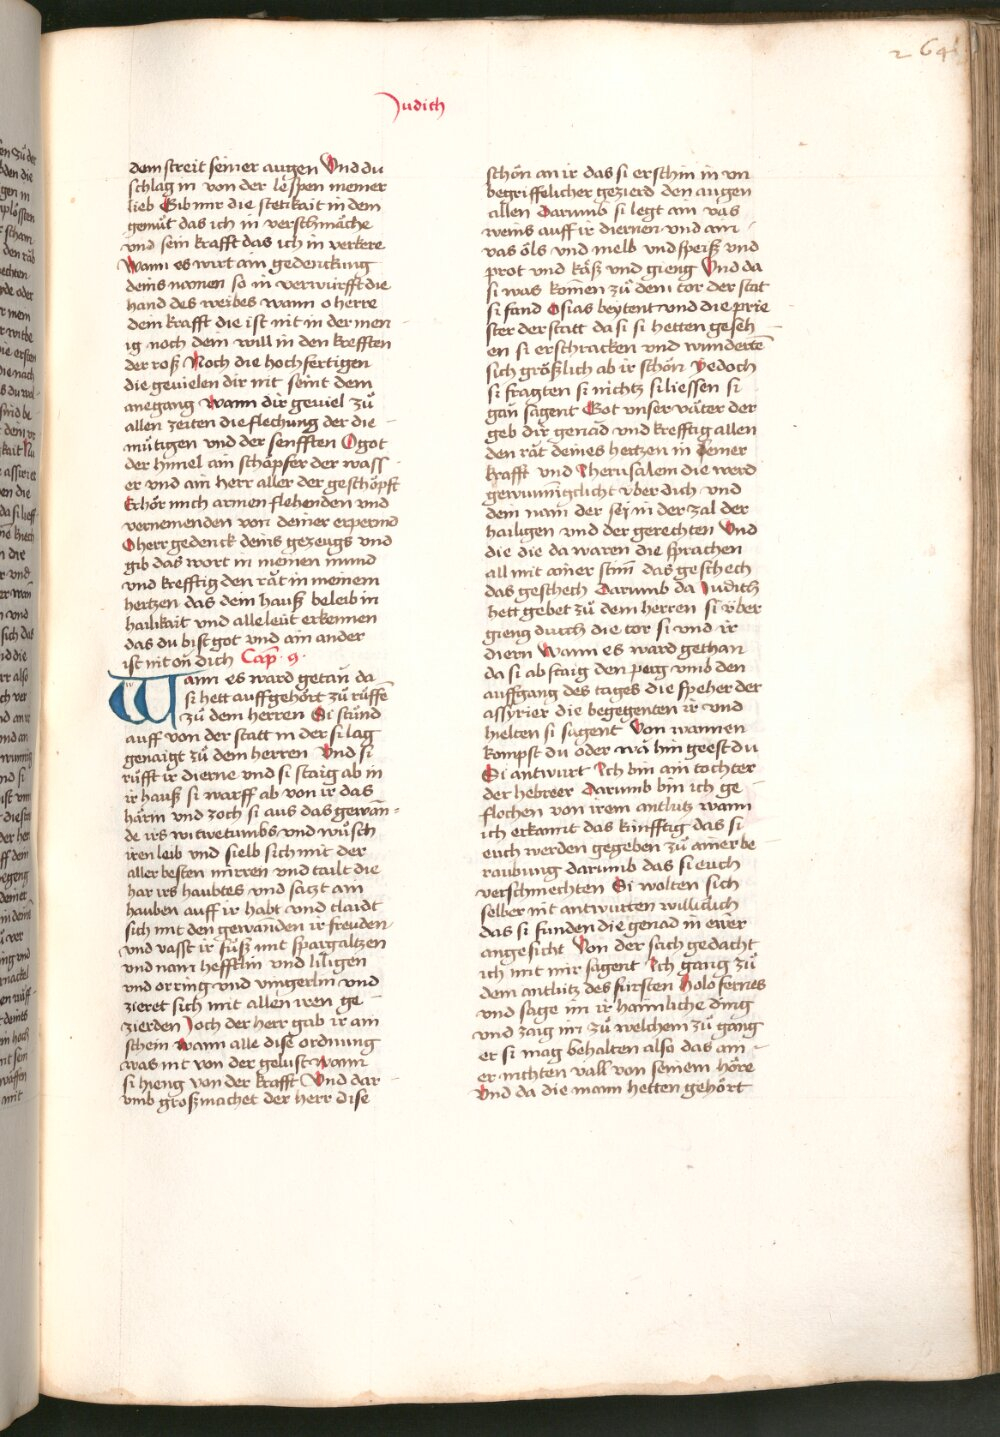 264
Judich
dem streit seiner augen Vnd du
schlag in von der lespen meiner
lieb Gib mir die stetikait in dem
gemůt das ich in verschmäche
vnd sein krafft das ich in verkere
Wann es wirt ain gedenckung
deins namen so in verwürfft die
hand des weibes wann o herre
dein krafft die ist nit in der men
ig noch dein will in den krefften
der roß Noch die hochfertigen
die gevielen dir nit seint dem
anegang Wann dir geviel zů
allen zeiten die flechung der die
můtigen vnd der senfften O got
der himel ain schöpfer der wass
er vnd ain herr aller der geschöpft
Erhör mich armen flehenden vnd
vernemenden von deiner erpermd
O herr gedenck deins gezeugs vnd
gib das wort in meinen mund
vnd krefftig den rät in meinem
hertzen das dein hauß beleib in
hailikait vnd alle leüt erkennen
das du bist got vnd ain ander
ist nit on dich Cap. 9.
Wann es ward getan da
si hett auffgehört zů rüffē
zů dem herren Si stůnd
auff von der statt in der si lag
genaigt zů dem herren Vnd si
růfft ir dierne vnd si staig ab in
ir hauß si warff ab von ir das
härin vnd zoch si aus das gewān
de irs witwetumbs vnd wůsch
iren leib vnd sielb sich mit der
aller besten mirren vnd tailt die
har irs haubtes vnd satzt ain
hauben auff ir habt vnd claidt
sich mit den gewanden ir freuden
vnd vasst ir füß mit spargaltzen
vnd nam hefftlin vnd liligen
vnd orring vnd vingerlin vnd
zieret sich mit allen iren ge
zierden Joch der herr gab ir ain
schein wann alle dise ordnung
was nit von der gelust wann
si hieng von der krafft Vnd dar
vmb großmachet der herr dise
schön an ir das si erschin in vn
begriffelicher gezierd den augen
allen Darumb si legt ain vas
weins auff ir diernen vnd ain
vas öls vnd melb vnd speiß vnd
prot vnd käß vnd gieng Vnd da
si was komen zů dem tor der stat
si fand Osias beytent vnd die prie
ster der statt da si si hetten geseh
en si erschracken vnd wunderten
sich größlich ab ir schön Yedoch
si fragten si nichtz si liessen si
gan sagent Got vnser väter der
geb dir genad vnd krefftig allen
den rät deines hertzen in seiner
krafft vnd Jherusalem die werd
gewunnigclicht vber dich vnd
dein nam der sey in der zal der
hailigen vnd der gerechten Vnd
die die da waren die sprachen
all mit ainer stim das geschech
das geschech Darumb da Judich
hett gebet zů dem herren si vber
gieng durch die tor si vnd ir
diern Wann es ward gethan
da si ab staig den perg vmb den
auffgang des tages die speher der
assyrier die begegenten ir vnd
hielten si sagent Von wannen
kompst du oder wa hin geest du
Si antwurt Ich bin ain tochter
der hebreer Darumb bin ich ge
flochen von irem antlütz wann
ich erkannt das künfftig das si
euch werden gegeben zů ainer be
raubung darumb das si euch
verschmechten Si wolten sich
selber nit antwurten willicklich
das si funden die genad in ewer
angesicht Von der sach gedacht
ich mit mir sagent Ich gang zů
dem antlütz des fürsten Holofernes
vnd sage im ir haimliche ding
vnd zaig im zů welchem zů gang
er si mag behalten also das ain
er nichten vall von seinem höre
Vnd da die mann hetten gehört